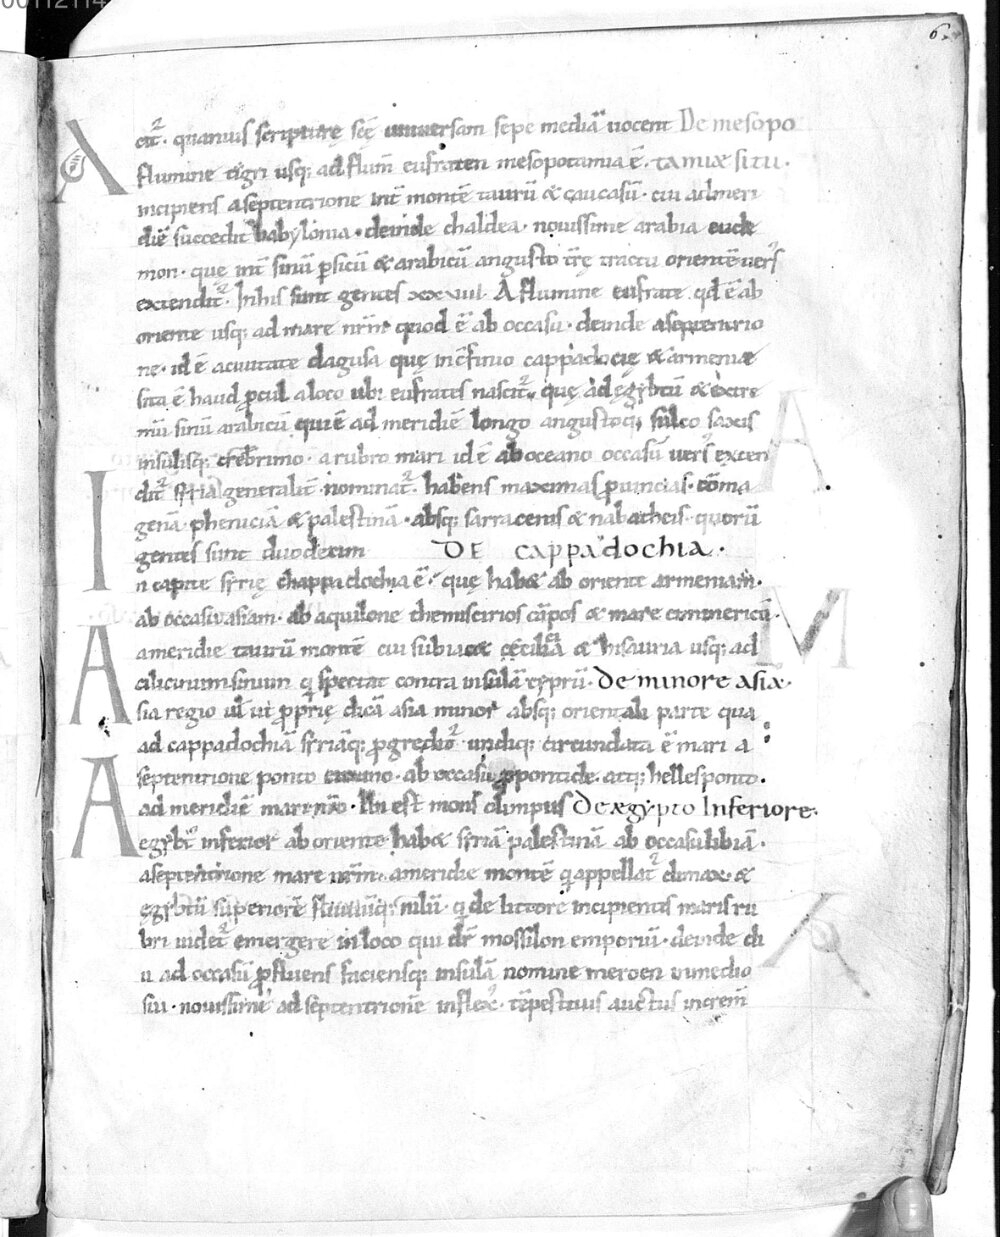 00112114
6.
cit̃. quamuis scripturę scę uniuersam sepe mediã uocent De mesopo
A flumine tigri usq; ad flum̃ eufraten mesopotamia ẽ. tamiæ situ.
incipiens a septentrione int̃ montẽ taurũ & caucasũ. cui ad meri
diẽ succedit babylonia. deinde chaldea. nouissime arabia eude
mon. quę int̃ sinũ psicũ & arabicũ angusto trę tractu orientẽ uers
extendit̃. In his sunt gentes xxxuiii. A flumine eufrate qd ẽ ab
oriente usq; ad mare nrm̃ quod ẽ ab occasu. deinde a septentrio
ne. id ẽ a ciuitate dagusa quę in cfinio cappadocię & armeniæ
sita ẽ haud pcul a loco ubi eufrates nascit̃. quę ad egybtũ & extre
mũ sinũ arabicũ qui ẽ ad meridiẽ longo angustoq; sulco saxis
insulisq; creberrimo. a rubro mari id ẽ ab oceano occasũ uers exten
dit̃ syria generalit̃ nominat̃. habens maximas puincias. cõma
genã. pheniciã & palestinã. absq; sarracenis & nabatheis. quorũ
gentes sunt duodecim DE cappadochia.
In capite syrię chappadochia ẽ. quę hab& ab oriente armeniam.
ab occasu asiam. ab aquilone themiscirios cãpos & mare cimmericũ.
a meridie taurũ montẽ cui subiac& ceciliã & hisauria usq; ad
cilicinum sinum q spectat contra insulã cyprũ. De minore asiæ.
Asia regio uł ut pprię dicã asia minor absq; orientali parte qua
ad cappadochiã syriãq; pgredit̃ undiq; circundata ẽ mari a
septentrione ponto euxino. ab occasu ppontide. atq; hellesponto.
ad meridiẽ mari nr̃o. Ibi est mons olimpus De ægypto Inferiore.
Aegybt inferior ab oriente hab& syriã palestinã ab occasu libiã.
a septentrione mare nrm̃. a meridie montẽ q appellat̃ climax. &
ęgybtũ superiorẽ fluuiũq; nilũ. q de littore incipientis maris ru
bri uidet̃ emergere in loco qui dr̃ mossilon emporiũ. deinde di
u ad occasũ pfluens faciensq; insulã nomine meroen in medio
sui. nouissime ad septentrionẽ inflexs. tẽpestiuis auctus increm̃